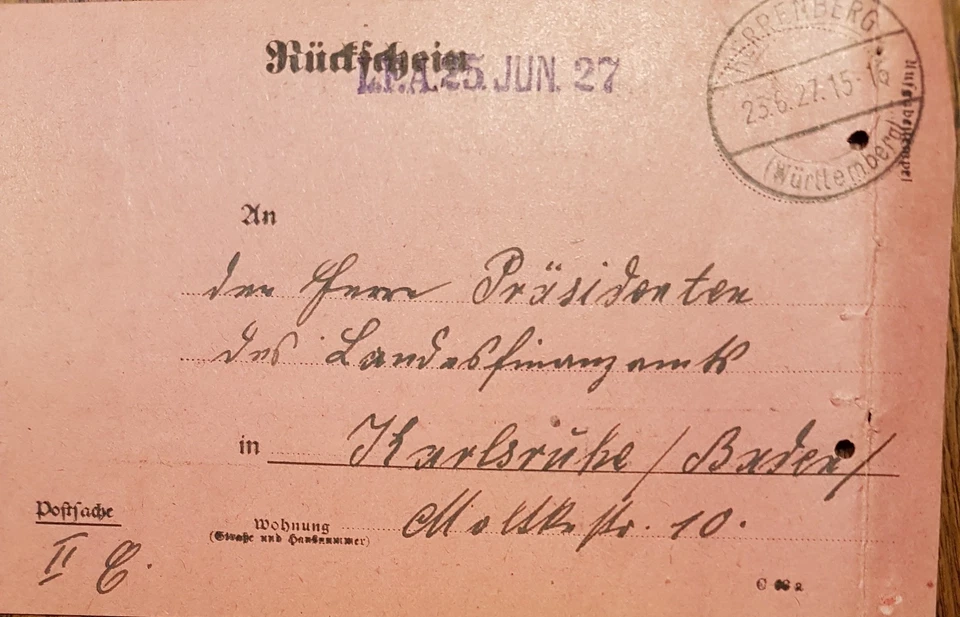 Rückschein
L.F.A. 25. JUN. 27
HERRENBERG
23.6.27.15-16
(Württemberg)
Aufgabestempel
An
den Herrn Präsidenten
des Landesfinanzamts
in Karlsruhe / Baden /
Postsache
Wohnung Moltkestr. 10.
(Straße und Hausnummer)
II C.